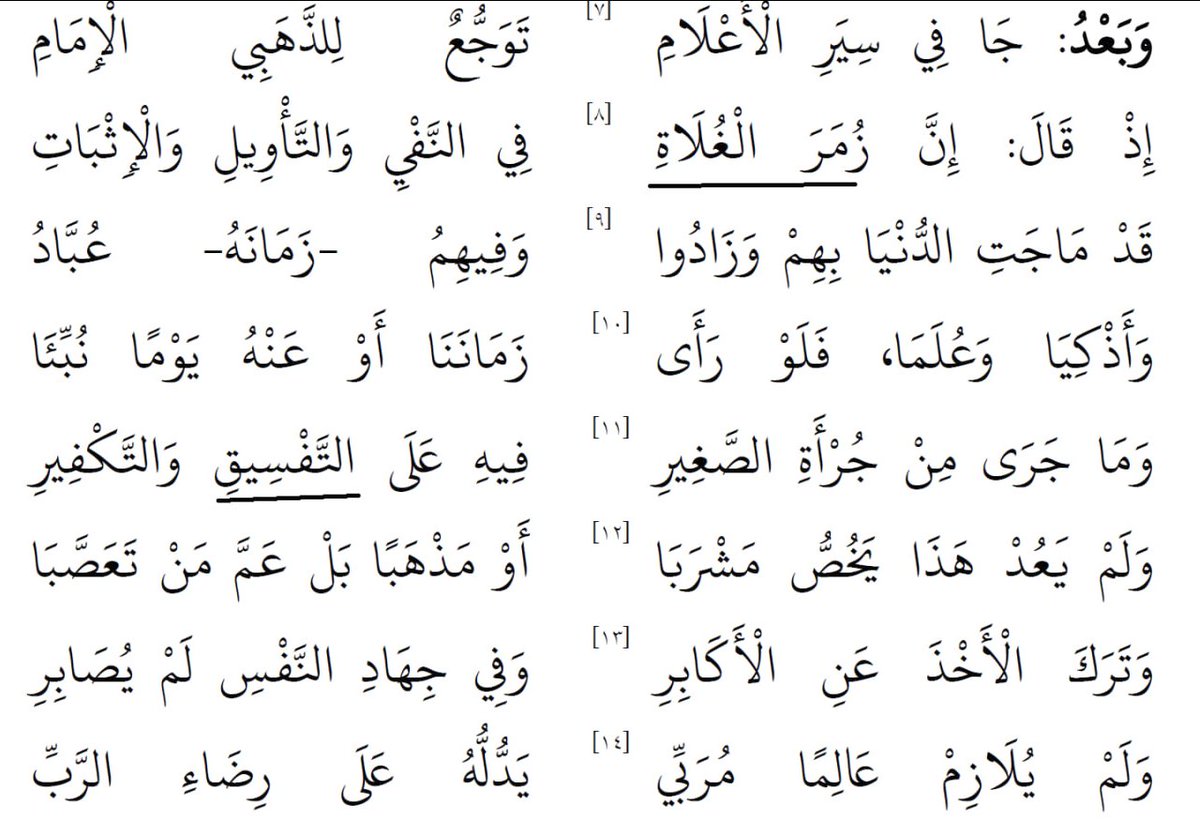 وَبَعْدُ: جَا فِي سِيَرِ الْأَعْلَامِ [٧] تَوَجُّعٌ لِلذَّهَبِي الْإِمَامِ
إِذْ قَالَ: إِنَّ زُمَرَ الْغُلَاةِ [٨] فِي النَّفْيِ وَالتَّأْوِيلِ وَالْإِثْبَاتِ
قَدْ مَاجَتِ الدُّنْيَا بِهِمْ وَزَادُوا [٩] وَفِيهِمُ -زَمَانَهُ- عُبَّادُ
وَأَذْكِيَا وَعُلَمَا، فَلَوْ رَأَى [١٠] زَمَانَنَا أَوْ عَنْهُ يَوْمًا نُبِّئَا
وَمَا جَرَى مِنْ جُرْأَةِ الصَّغِيرِ [١١] فِيهِ عَلَى التَّفْسِيقِ وَالتَّكْفِيرِ
وَلَمْ يَعُدْ هَذَا يَخُصُّ مَشْرَبَا [١٢] أَوْ مَذْهَبًا بَلْ عَمَّ مَنْ تَعَصَّبَا
وَتَرَكَ الْأَخْذَ عَنِ الْأَكَابِرِ [١٣] وَفِي جِهَادِ النَّفْسِ لَمْ يُصَابِرِ
وَلَمْ يُلَازِمْ عَالِمًا مُرَبِّي [١٤] يَدُّلُّهُ عَلَى رِضَاءِ الرَّبِّ